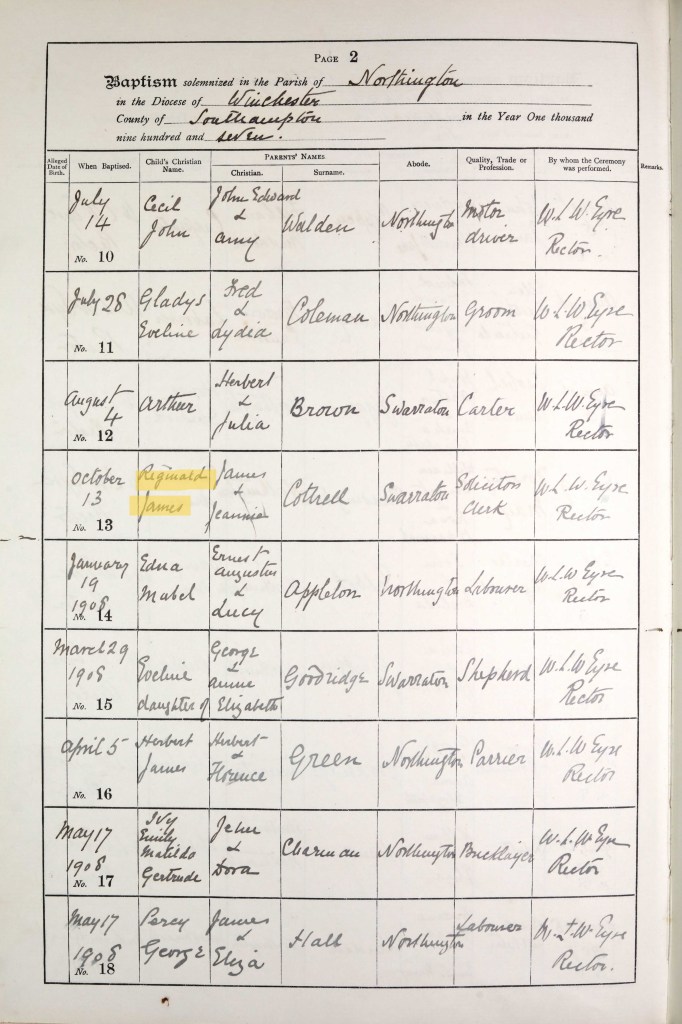 PAGE 2
Baptism solemnized in the Parish of Northington
in the Diocese of Winchester
County of Southampton in the Year One thousand
nine hundred and seven.
Alleged Date of Birth.
When Baptised.
Child's Christian Name.
PARENTS' NAMES
Christian.
Surname.
Abode.
Quality, Trade or Profession.
By whom the Ceremony was performed.
Remarks.
July 14
No. 10
Cecil John
John Edward & Amy
Walden
Northington
Motor driver
W. L. W. Eyre Rector.
July 28
No. 11
Gladys Eveline
Fred & Lydia
Coleman
Northington
Groom
W. L. W. Eyre Rector
August 4
No. 12
Arthur
Herbert & Julia
Brown
Swarraton
Carter
W. L. W. Eyre Rector
October 13
No. 13
Reginald James
James & Jeannie
Cottrell
Swarraton
Solicitors Clerk
W. L. W. Eyre Rector
January 19 1908
No. 14
Edna Mabel
Ernest Augustus & Lucy
Appleton
Northington
Labourer
W. L. W Eyre Rector
March 29 1908
No. 15
Eveline daughter of
George & Annie Elizabeth
Goodridge
Swarraton
Shepherd
W. L. W Eyre Rector
April 5
No. 16
Herbert James
Herbert & Florence
Green
Northington
W. L. W Eyre Rector
May 17 1908
No. 17
Ivy Emily Matilda Gertrude
John & Dora
Charman
Northington
Bricklayer
W. L. W Eyre Rector
May 17 1908
No. 18
Percy George
James & Eliza
Hall
Northington
Labourer
W. L. W. Eyre Rector.